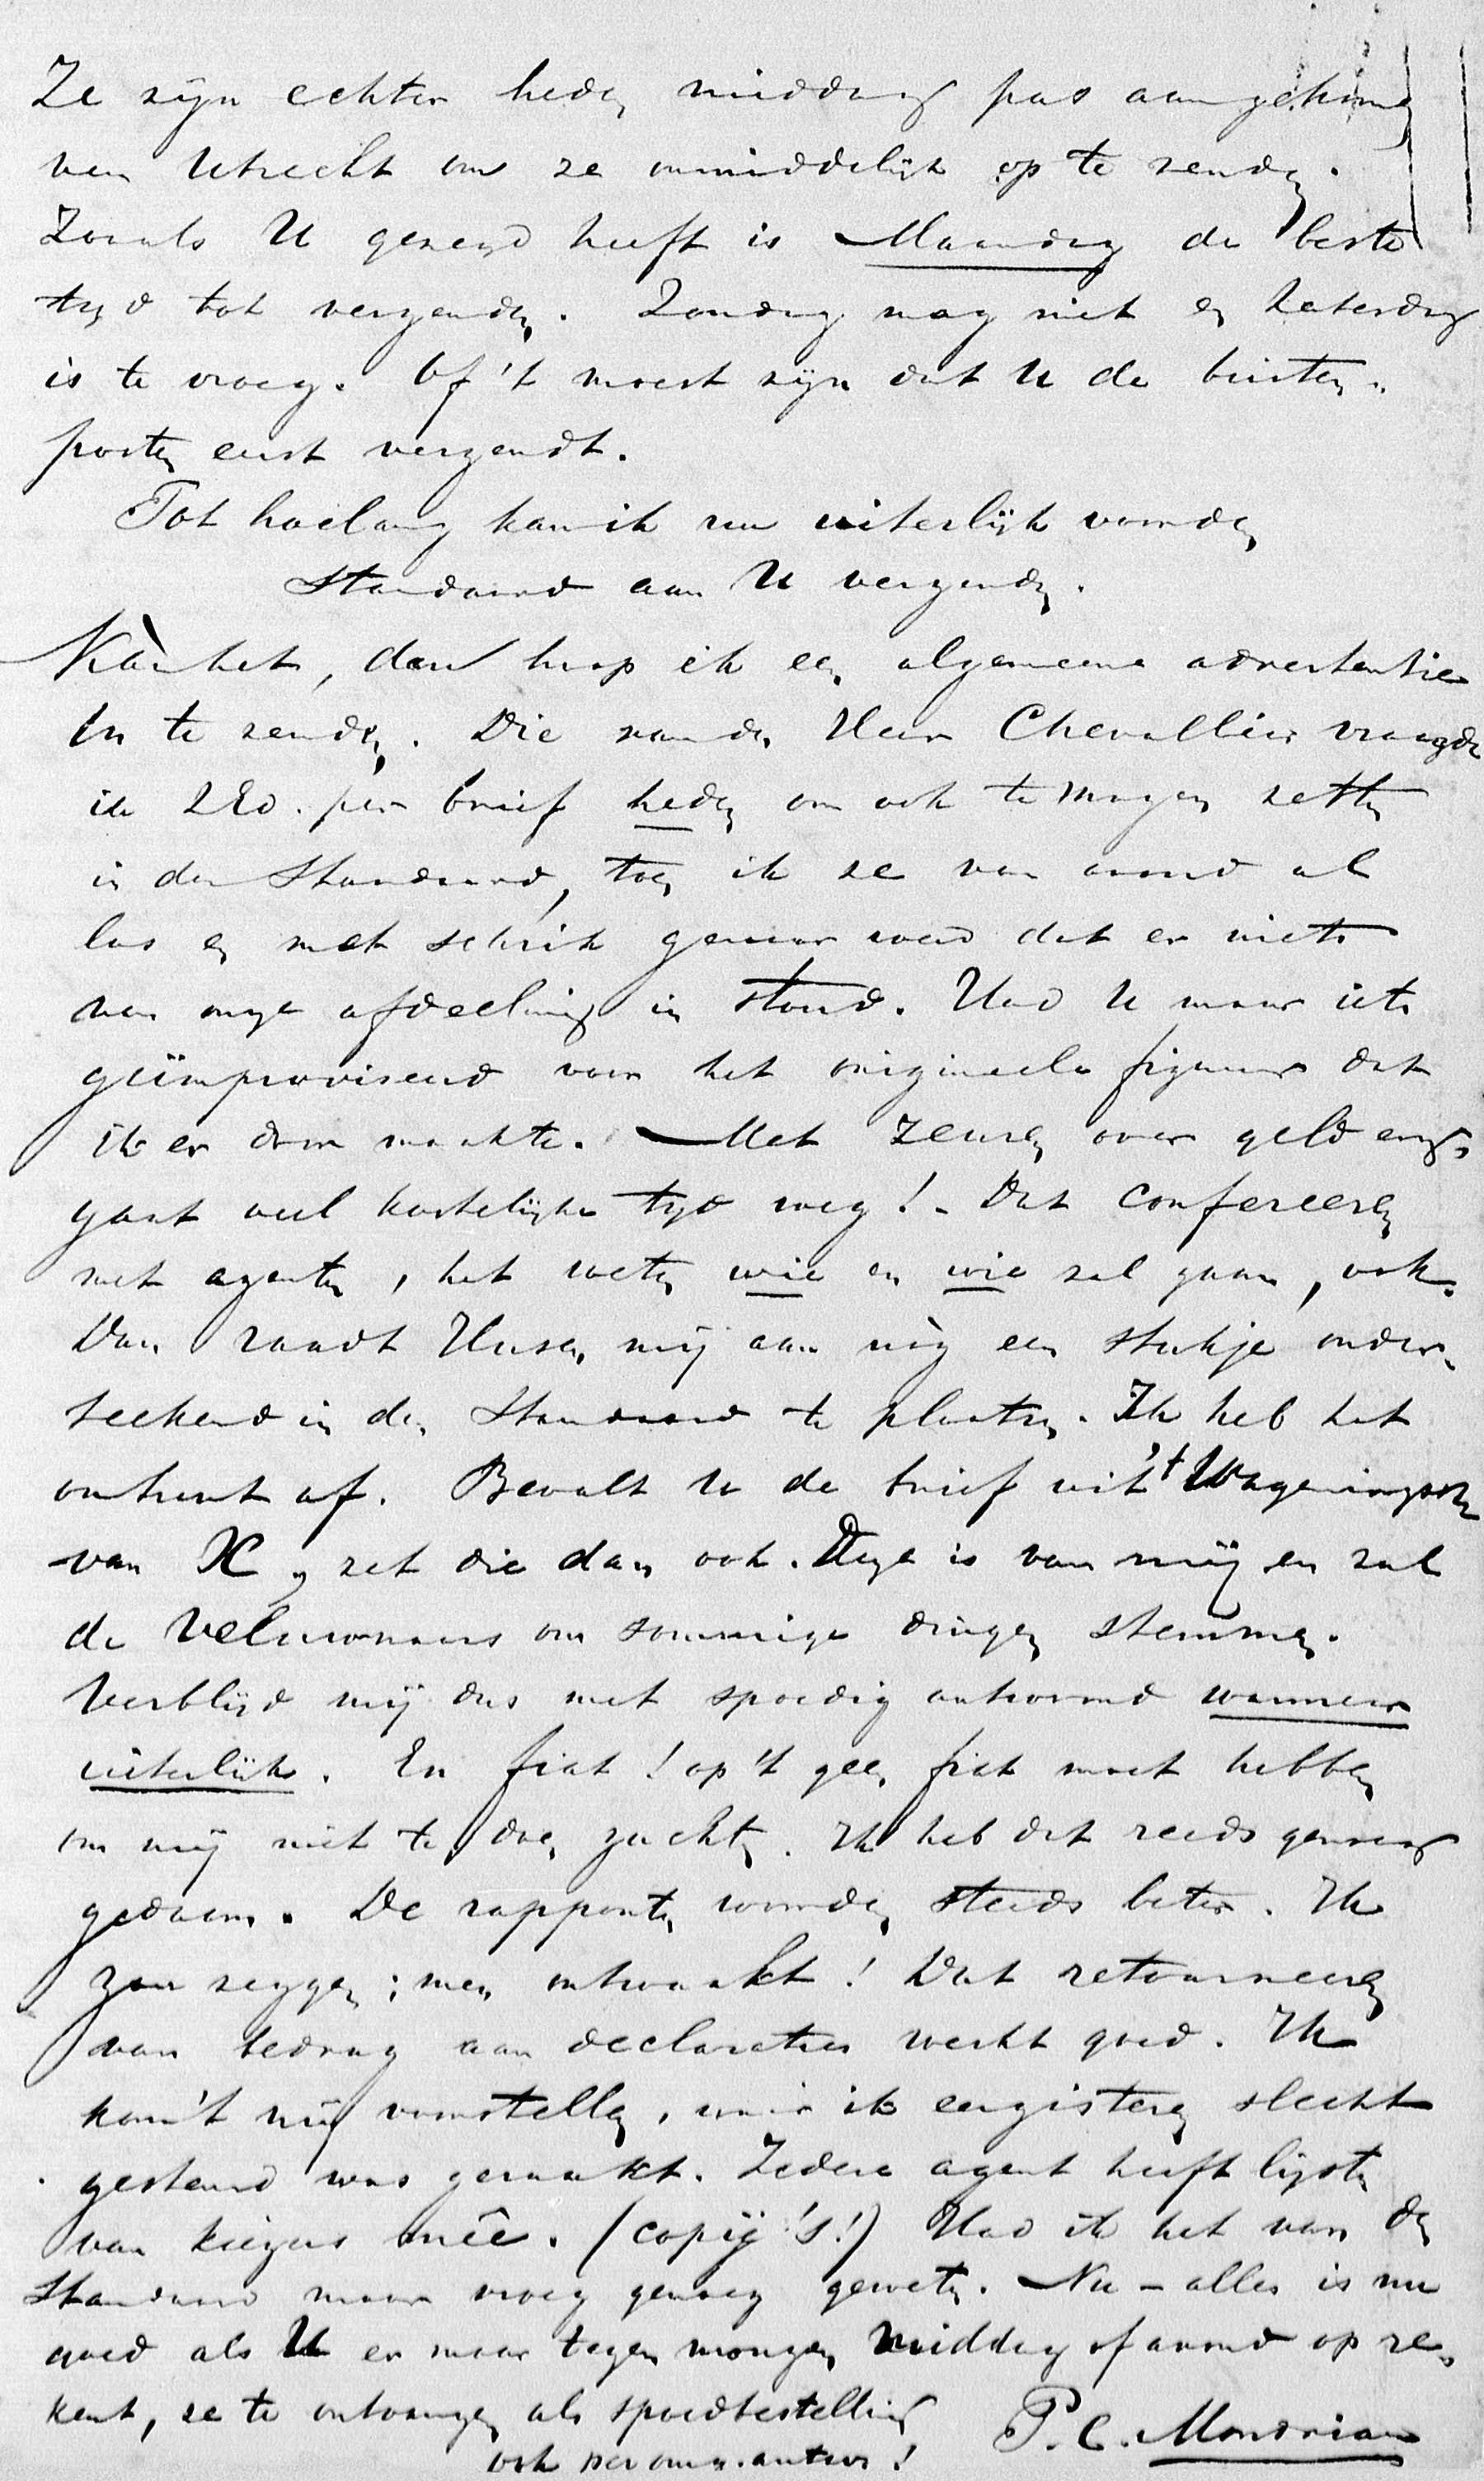 Ze zijn echter heden middag pas aangekomen
van Utrecht om ze onmiddelijk op te zenden.
Zooals U gezegd heeft is Maandag de beste
tijd tot verzenden. Zondag mag niet en Zaterdag
is te vroeg. Of 't moest zijn dat U de buiten-
posten eerst verzendt.
Tot hoelang kan ik nu uiterlijk voor den
Standaard aan U verzenden.
Kàn het, dan hoop ik een algemeene advertentie
in te zenden. Die van den Heer Chevallier vraagde
ik ZEd. per brief heden om ook te mogen zetten
in den Standaard, toen ik ze van avond al
las en met schrik gewaar werd dat er niets
van onze afdeeling in stond. Had U maar iets
geïmproviseerd voor het origineele figuur dat
ik er door maakte. Met zeuren over geld enz.
gaat veel kostelijke tijd weg! - Dat confereeren
met agenten, het weten wie en wie zal gaan, ook.
Dan raadt Husen mij aan nòg een stukje onder-
teekend in den Standaard te plaatsen. Ik heb het
omtrent af. Bevalt U de brief uit 't Wageningsch
van X, zet die dan ook. Deze is van mij en zal
de Veluwnaars om sommige dingen stemmen.
Verblijd mij dus met spoedig antwoord wanneer
uiterlijk. En fiat! op 't geen fiat moet hebben
om mij niet te doen zuchten. Ik heb dat reeds genoeg
gedaan. De rapporten worden steeds beter. Ik
zou zeggen; men ontwaakt! Dat retourneeren
van bedrag aan declaraties werkt goed. Ik
kan 't mij voorstellen, waar ik eergisteren slecht
gestemd was geraakt. Iedere agent heeft lijsten
van kiezers mêe. (copij's!) Had ik het van den
Standaard maar vroeg genoeg geweten. Nu - alles is nu
goed als U er maar tegen morgen middag of avond op re-
kent, ze te ontvangen als spoedbestelling
P. C. Mondriaan
ook per omg. antw.!